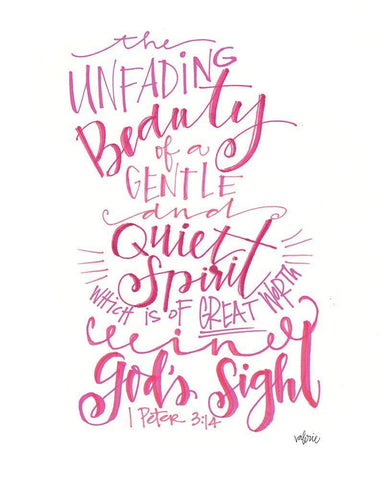 the
UNFADING
Beauty
of a
GENTLE
and
Quiet
Spirit
WHICH IS OF GREAT WORTH
in
God's Sight
1 Peter 3:14
valerie